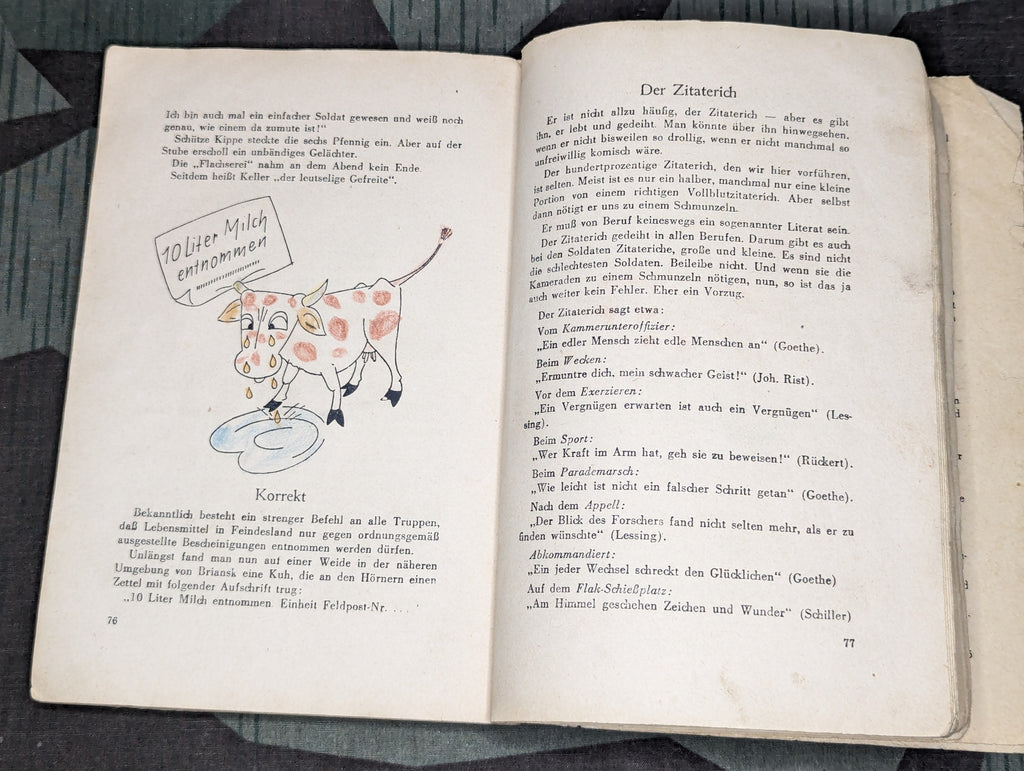 Ich bin auch mal ein einfacher Soldat gewesen und weiß noch
genau, wie einem da zumute ist!"
Schütze Kippe steckte die sechs Pfennig ein. Aber auf der
Stube erscholl ein unbändiges Gelächter.
Die „Flachserei" nahm an dem Abend kein Ende.
Seitdem heißt Keller „der leutselige Gefreite".
10 Liter Milch
entnommen
Korrekt
Bekanntlich besteht ein strenger Befehl an alle Truppen,
daß Lebensmittel in Feindesland nur gegen ordnungsgemäß
ausgestellte Bescheinigungen entnommen werden dürfen.
Unlängst fand man nun auf einer Weide in der näheren
Umgebung von Briansk eine Kuh, die an den Hörnern einen
Zettel mit folgender Aufschrift trug:
„10 Liter Milch entnommen. Einheit Feldpost-Nr. . . .
76
Der Zitaterich
Er ist nicht allzu häufig, der Zitaterich — aber es gibt
ihn, er lebt und gedeiht. Man könnte über ihn hinwegsehen,
wenn er nicht bisweilen so drollig, wenn er nicht manchmal so
unfreiwillig komisch wäre.
Der hundertprozentige Zitaterich, den wir hier vorführen,
ist selten. Meist ist es nur ein halber, manchmal nur eine kleine
Portion von einem richtigen Vollblutzitaterich. Aber selbst
dann nötigt er uns zu einem Schmunzeln.
Er muß von Beruf keineswegs ein sogenannter Literat sein.
Der Zitaterich gedeiht in allen Berufen. Darum gibt es auch
bei den Soldaten Zitateriche, große und kleine. Es sind nicht
die schlechtesten Soldaten. Beileibe nicht. Und wenn sie die
Kameraden zu einem Schmunzeln nötigen, nun, so ist das ja
auch weiter kein Fehler. Eher ein Vorzug.
Der Zitaterich sagt etwa:
Vom Kammerunteroffizier:
„Ein edler Mensch zieht edle Menschen an" (Goethe).
Beim Wecken:
„Ermuntre dich, mein schwacher Geist!" (Joh. Rist).
Vor dem Exerzieren:
„Ein Vergnügen erwarten ist auch ein Vergnügen" (Les-
sing).
Beim Sport:
„Wer Kraft im Arm hat, geh sie zu beweisen!" (Rückert).
Beim Parademarsch:
„Wie leicht ist nicht ein falscher Schritt getan" (Goethe).
Nach dem Appell:
„Der Blick des Forschers fand nicht selten mehr, als er zu
finden wünschte" (Lessing).
Abkommandiert:
„Ein jeder Wechsel schreckt den Glücklichen" (Goethe)
Auf dem Flak-Schießplatz:
„Am Himmel geschehen Zeichen und Wunder" (Schiller)
77